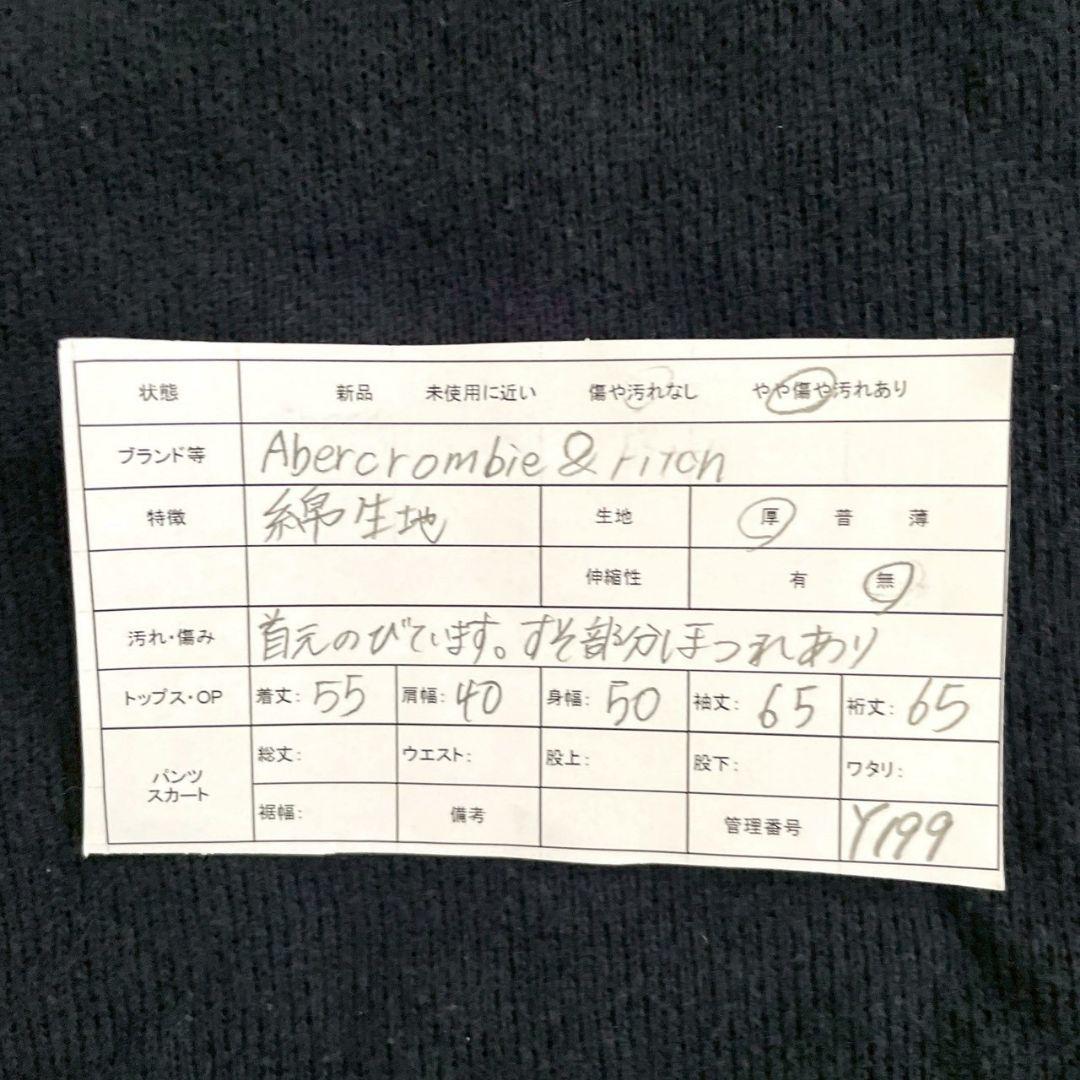 状態 新品 未使用に近い 傷や汚れなし やや傷や汚れあり
ブランド等 Abercrombie & Fitch
特徴 綿生地 生地 厚 普 薄
伸縮性 有 無
汚れ・傷み 首元のびています。すそ部分ほつれあり
トップス・OP 着丈: 55 肩幅: 40 身幅: 50 袖丈: 65 裄丈: 65
パンツ スカート 総丈: ウエスト: 股上: 股下: ワタリ:
裾幅: 備考 管理番号 Y199